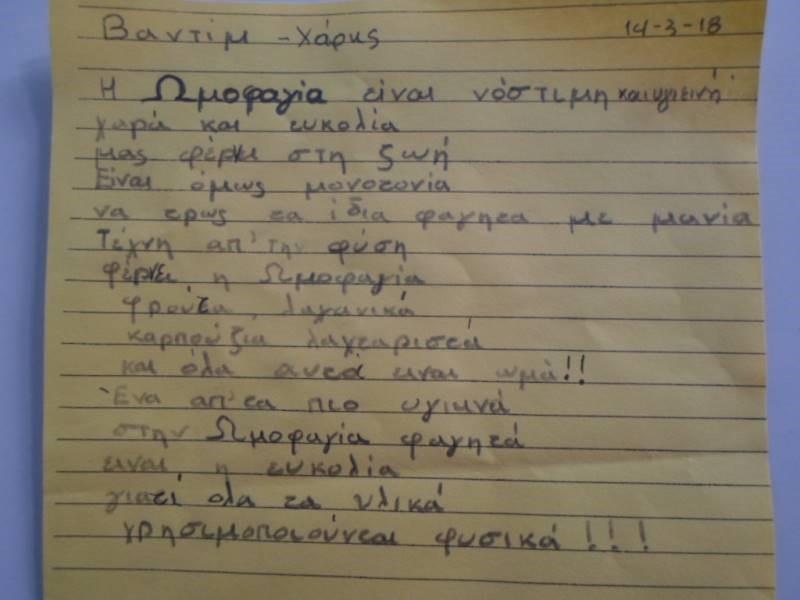 Βαντιμ - Χάρης 14-3-18
Η Ωμοφαγία είναι νόστιμη και υγιεινή
χαρά και ευκολία
μας φέρνει στη ζωή
Είναι όμως μονοτονία
να τρως τα ίδια φαγητα με μανία
Τέχνη απ' την φύση
φέρνει η Ωμοφαγία
φρούτα, λαχανικά
καρπούζια λαχταριστά
και όλα αυτά ειναι ωμά!!
Ένα απ'τα πιο υγιεινά
στην Ωμοφαγία φαγητά
ειναι η ευκολία
γιατί ολα τα υλικά
χρησιμοποιούνται φυσικά!!!